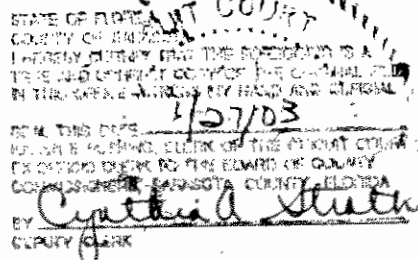 STATE OF FLORIDA
COUNTY OF
COURT
I HEREBY CERTIFY THAT THE FOREGOING IS A
TRUE AND CORRECT COPY OF THE ORIGINAL
IN THIS OFFICE WITNESS MY HAND AND OFFICIAL
SEAL THIS DATE 1/27/03
CLERK OF THE CIRCUIT COURT
EX OFFICIO CLERK TO THE BOARD OF COUNTY
COMMISSIONERS SARASOTA COUNTY, FLORIDA
BY Cynthia A
DEPUTY CLERK